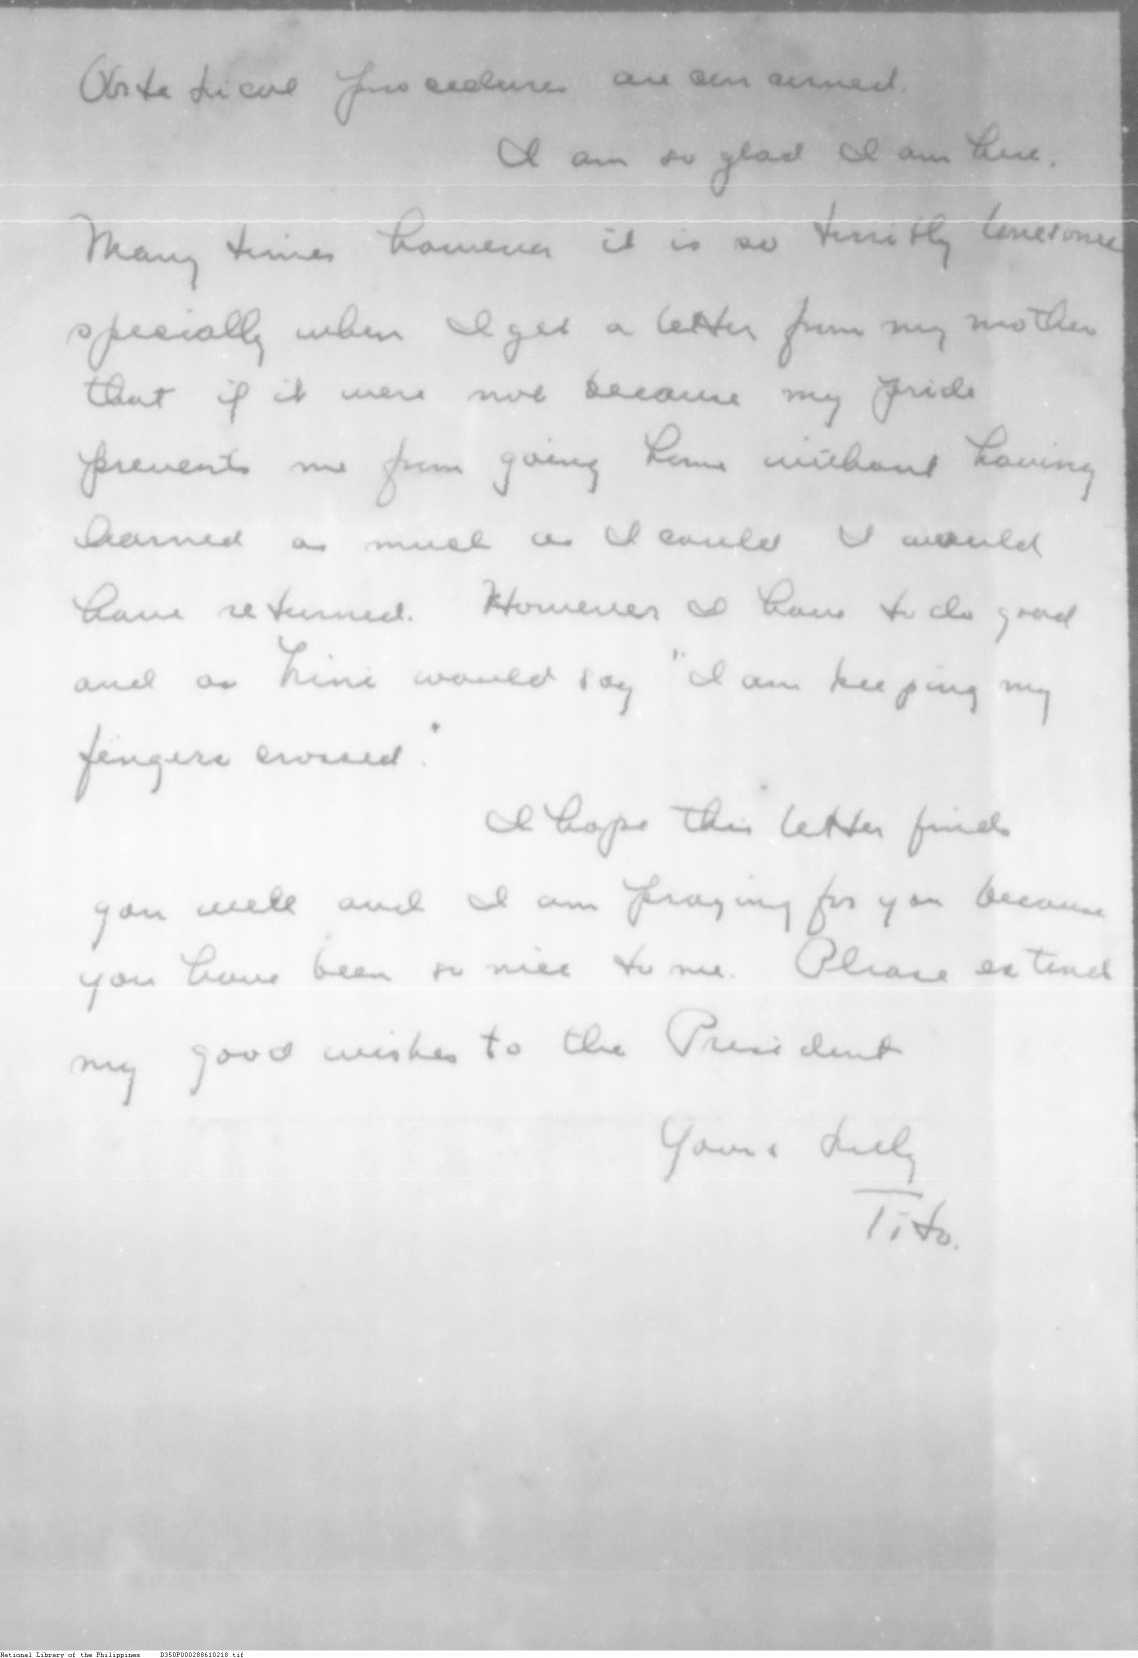 Obstetrical procedures are concerned.
I am so glad I am here.
Many times however it is so terribly lonesome
specially when I get a letter from my mother
that if it were not because my pride
prevents me from going home without having
learned as much as I could I would
have returned. However I have to do good
and as Nini would say "I am keeping my
fingers crossed".
I hope this letter finds
you well and I am praying for you because
you have been so nice to me. Please extend
my good wishes to the President
Yours truly
Tito.
National Library of the Philippines D350P000288610218.tif